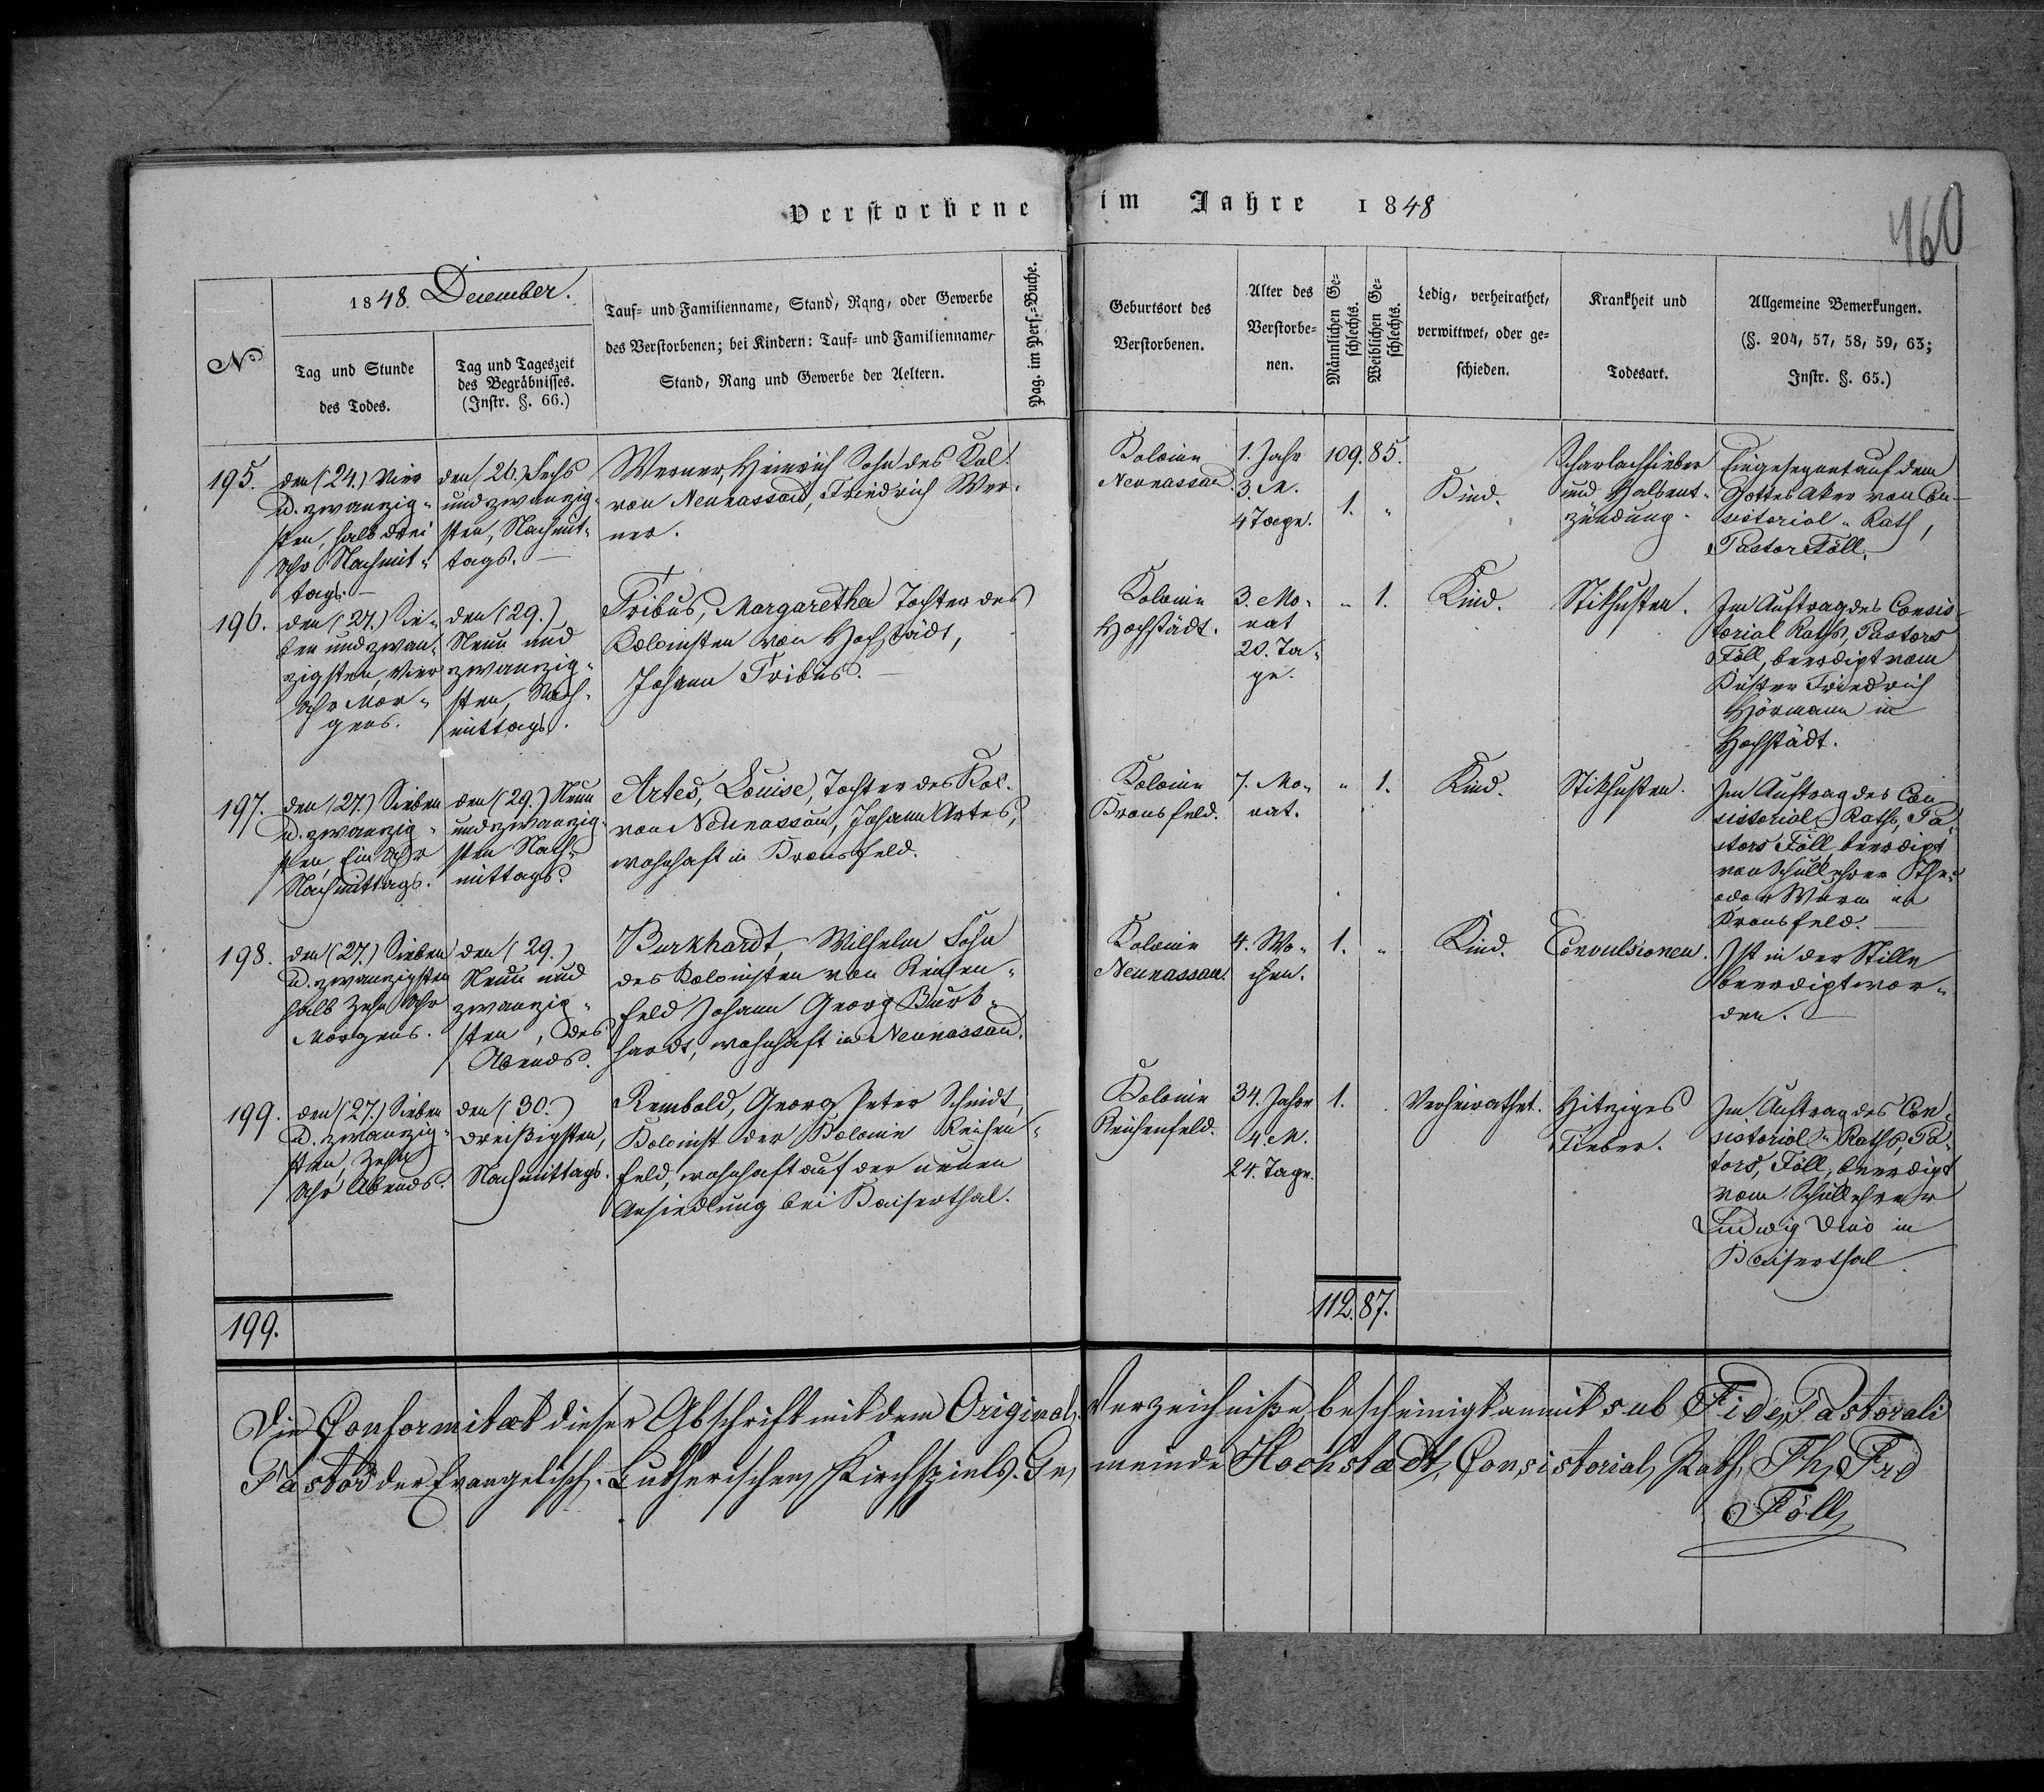 Verstorbene im Jahre 1848
160
No
1848. December.
Tag und Stunde
des Todes.
Tag und Tageszeit
des Begräbnisses.
(Instr. §. 66.)
Tauf- und Familienname, Stand, Rang, oder Gewerbe
des Verstorbenen; bei Kindern: Tauf- und Familienname,
Stand, Rang und Gewerbe der Aeltern.
Pag. im Pers.-Buche.
Geburtsort des
Verstorbenen.
Alter des
Verstorbe-
nen.
Männlichen Ge-
schlechts.
Weiblichen Ge-
schlechts.
Ledig, verheirathet,
verwittwet, oder ge-
schieden.
Krankheit und
Todesart.
Allgemeine Bemerkungen.
(§. 204, 57, 58, 59, 63;
Instr. §. 65.)
195.
den (24.) Vier
u. zwanzig-
sten, halb drei
Uhr Nachmit-
tags.
den (26.) Sechs
und zwanzig-
sten, Nachmit-
tags.
Werner, Heinrich Sohn des Kol.
von Neunassau, Friedrich Wer-
ner.
Kolonie
Neunassau
1. Jahr
3. M.
4 Tage.
109.
1.
85.
"
Kind.
Scharlachfieber
und Halsent-
zündung.
Eingesegnet auf dem
Gottesaker von Con-
sistorial-Rath,
Pastor Föll.
196.
den (27.) Sie-
ben und zwan-
zigsten, Vier
Uhr Mor-
gens.
den (29.)
Neun und
zwanzig-
sten, Nach-
mittags.
Tribus, Margaretha Tochter des
Kolonisten von Hochstädt,
Johann Tribus.
Kolonie
Hochstädt.
3. Mo-
nat
20. Ta-
ge.
"
1.
Kind.
Stikhusten.
Im Auftrag des Consis-
torial Raths, Pastors
Föll, beerdigt vom
Küster Friedrich
Hörmann in
Hochstädt.
197.
den (27.) Sieben
u. zwanzig-
sten, Ein Uhr
Nachmittags.
den (29.) Neun
und zwanzig-
sten Nach-
mittags.
Artes, Louise, Tochter des Kol.
von Neunassau, Johann Artes,
wohnhaft in Kronsfeld.
Kolonie
Kronsfeld.
7. Mo-
nat.
"
1.
Kind.
Stikhusten.
Im Auftrag des Con-
sistorial Raths, Pa-
stors Föll beerdigt
von Schullehrer The-
odor Wurm in
Kronsfeld.
198.
den (27.) Sieben
u. zwanzigsten
halb Zehn Uhr
Morgens.
den (29.)
Neun und
zwanzig-
sten, des
Abends.
Burkhardt, Wilhelm Sohn
des Kolonisten von Reichen-
feld Johann Georg Burk-
hardt, wohnhaft in Neunassau.
Kolonie
Neunassau.
4. Wo-
chen.
1.
"
Kind.
Convulsionen.
Ist in der Stille
beerdigt wor-
den.
199.
den (27.) Sieben
u. zwanzig-
sten, Zehn
Uhr Abends.
den (30.)
dreißigsten,
Nachmittags.
Rembold, Georg Peter Schmidt,
Kolonist der Kolonie Reichen-
feld, wohnhaft auf der neuen
Ansiedlung bei Kaiserthal.
Kolonie
Reichenfeld.
34. Jahre
4. M.
24. Tage.
1.
Verheirathet.
Hitziges
Fieber.
Im Auftrag des Con-
sistorial-Raths, Pa-
stors, Föll, beerdigt
vom Schullehrer
Ludwig in
Kaiserthal
199.
112. 87.
Die Conformitaet dieser Abschrift mit dem Original-Verzeichniße, bescheinigt anmit sub Fide Pastorali
Pastor der Evangelisch-Lutherischen Kirchspiels-Gemeinde Hochstaedt, Consistorial Rath, Th. Frd
Föll